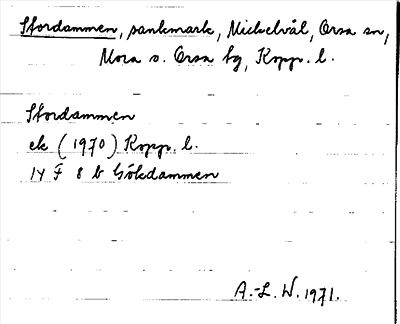 Stordammen, sankmark, Mickelvål, Orsa sn,
Mora o. Orsa tg, Kopp. l.
Stordammen
ek (1970) Kopp. l.
14 F 8 b Gökdammen
A.-L. W. 1971.